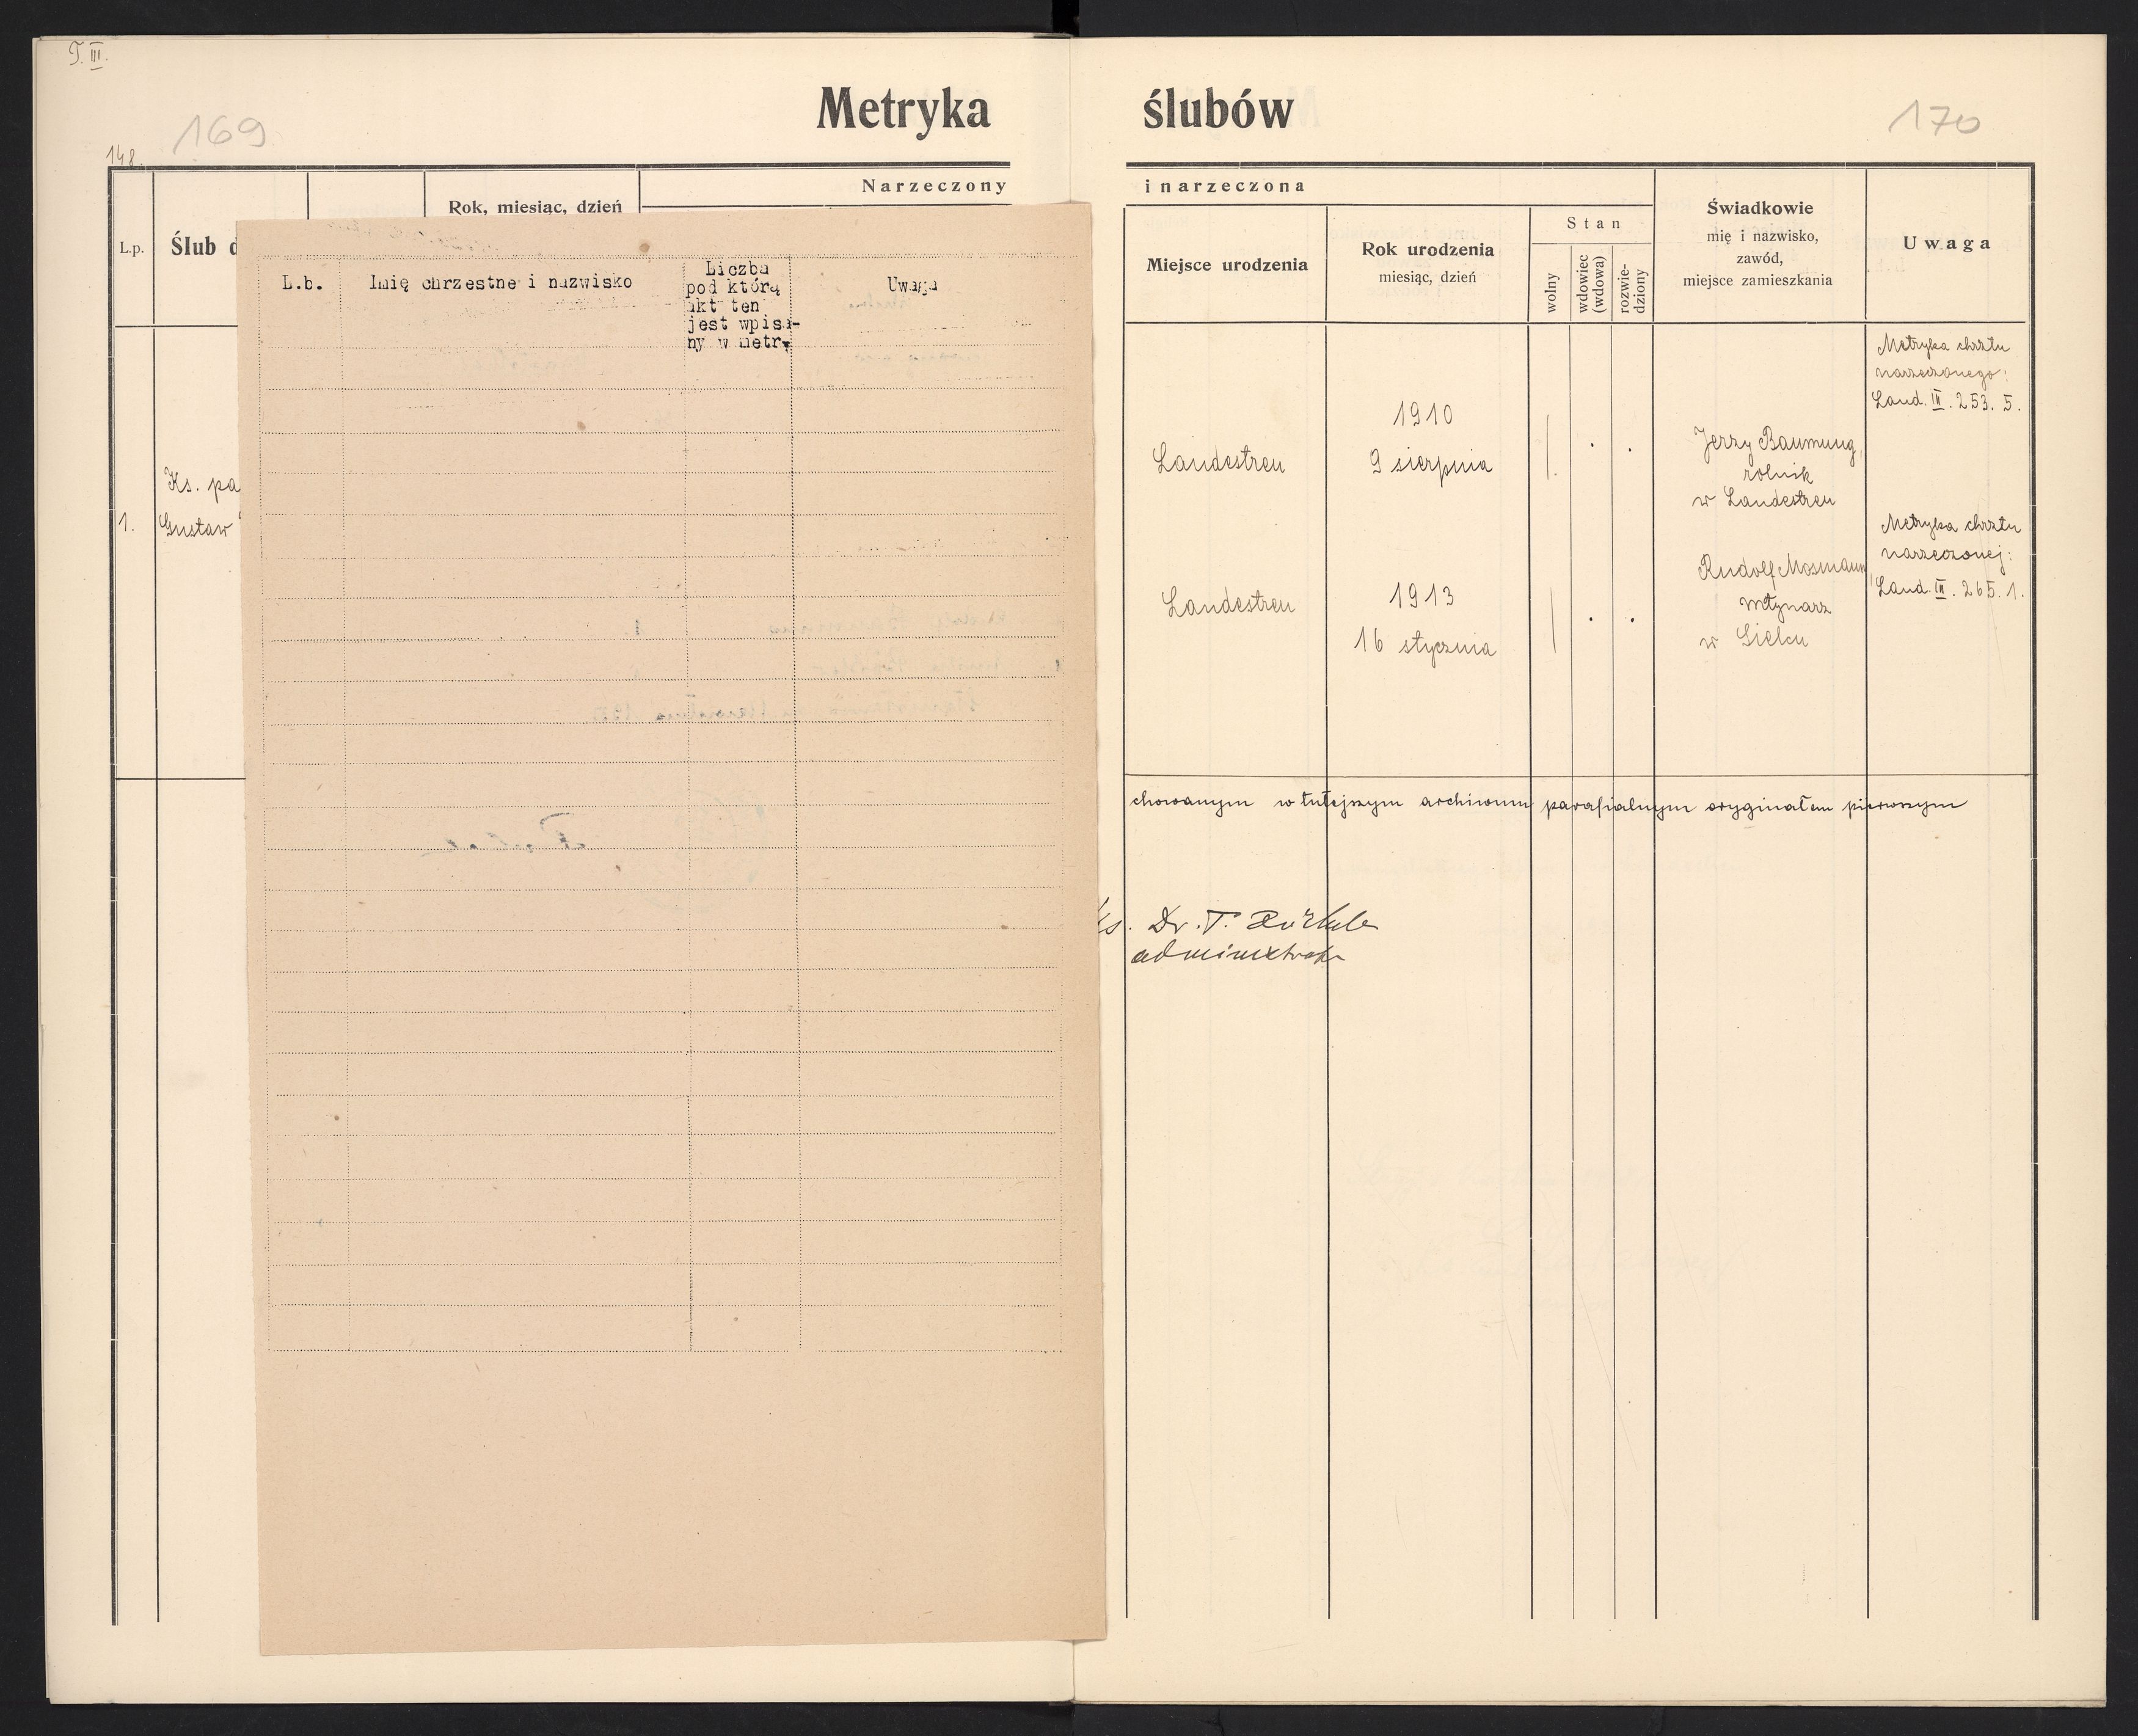 T. III.
Metryka ślubów
169
170
148.
Narzeczony
i narzeczona
L.p.
Ślub d
Rok, miesiąc, dzień
Miejsce urodzenia
Rok urodzenia
miesiąc, dzień
Stan
wolny
wdowiec
(wdowa)
rozwie-
dziony
Świadkowie
mię i nazwisko,
zawód,
miejsce zamieszkania
Uwaga
1.
Ks. pa
Gustaw
L.b.
Imię chrzestne i nazwisko
Liczba
pod którą
akt ten
jest wpisa-
ny w metr.
Uwaga
Landestreu
1910
9 sierpnia
Jerzy Baumung,
rolnik
w Landestreu
Metryka chrztu
narzeczonego:
Land. III. 253. 5.
Landestreu
1913
16 stycznia
Rudolf Mosmann
młynarz
w Sielcu
Metryka chrztu
narzeczonej:
Land. III. 265. 1.
chowanym w tutejszym archiwum parafialnym oryginałem pierwszym
Ks. Dr. T.
administrator